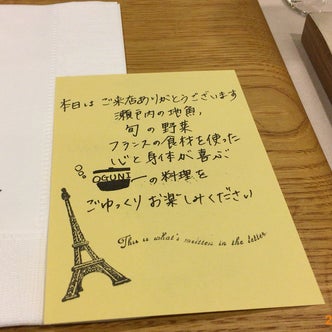 本日は ご来店ありがとうございます
瀬戸内の地魚、
旬の野菜
フランスの食材を使った
心と身体が喜ぶ
OGUNI の料理を
ごゆっくり お楽しみください
This is what's written in the letter